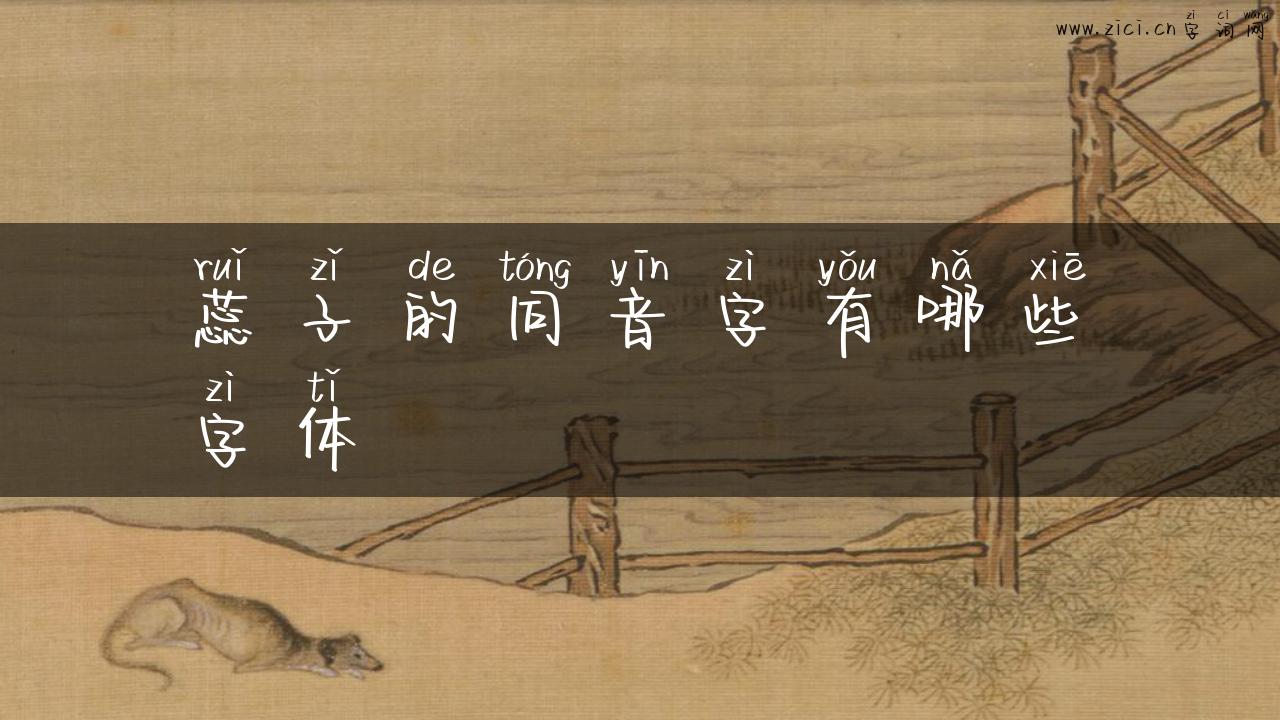 zì cí wǎng
www.zici.cn字词网
ruǐ zǐ de tóng yīn zì yǒu nǎ xiē
蕊子的同音字有哪些
zì tǐ
字体